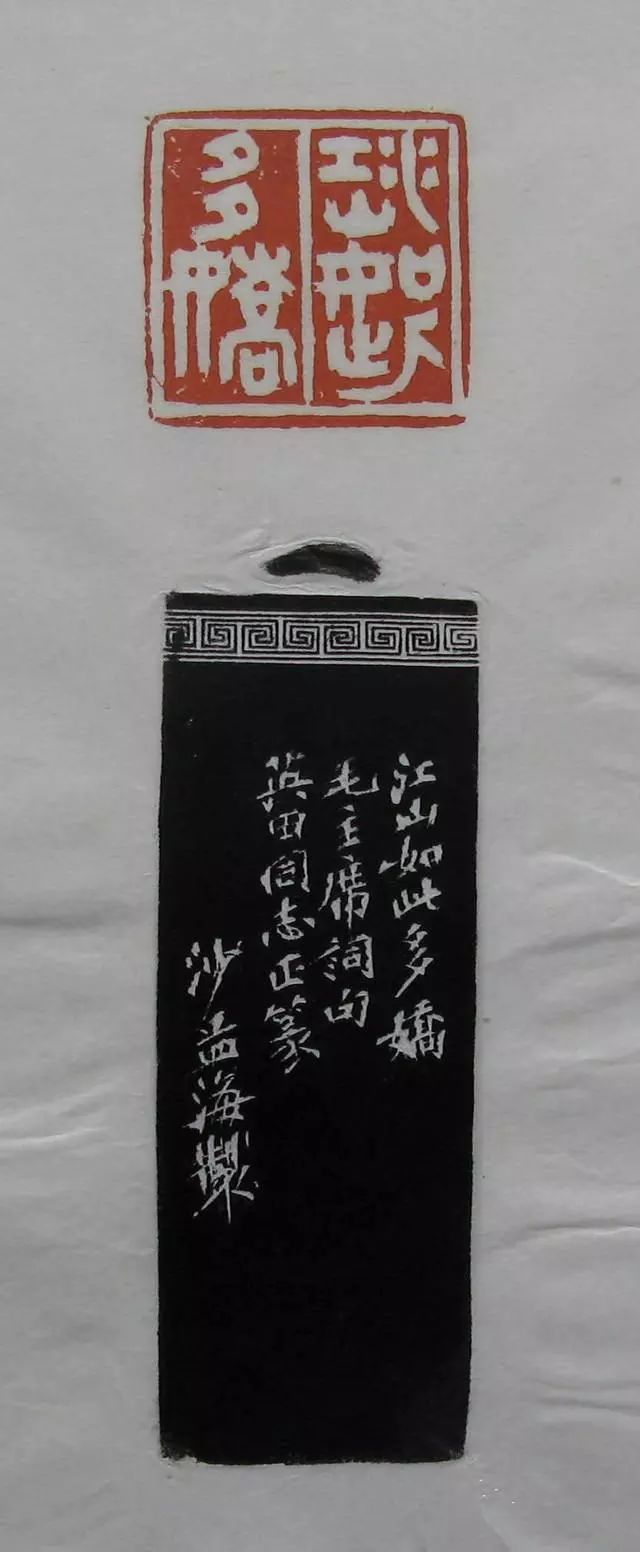 江山如此
多嬌
江山如此多嬌
毛主席詞句
田同志正篆
沙孟海製